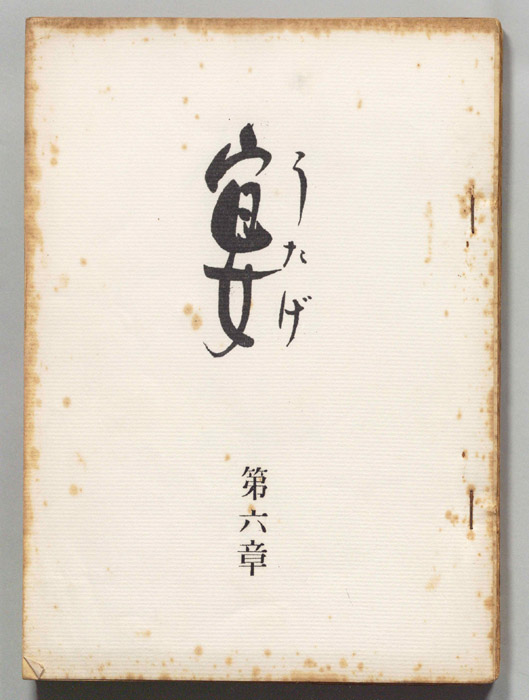 宴
うたげ
第六章